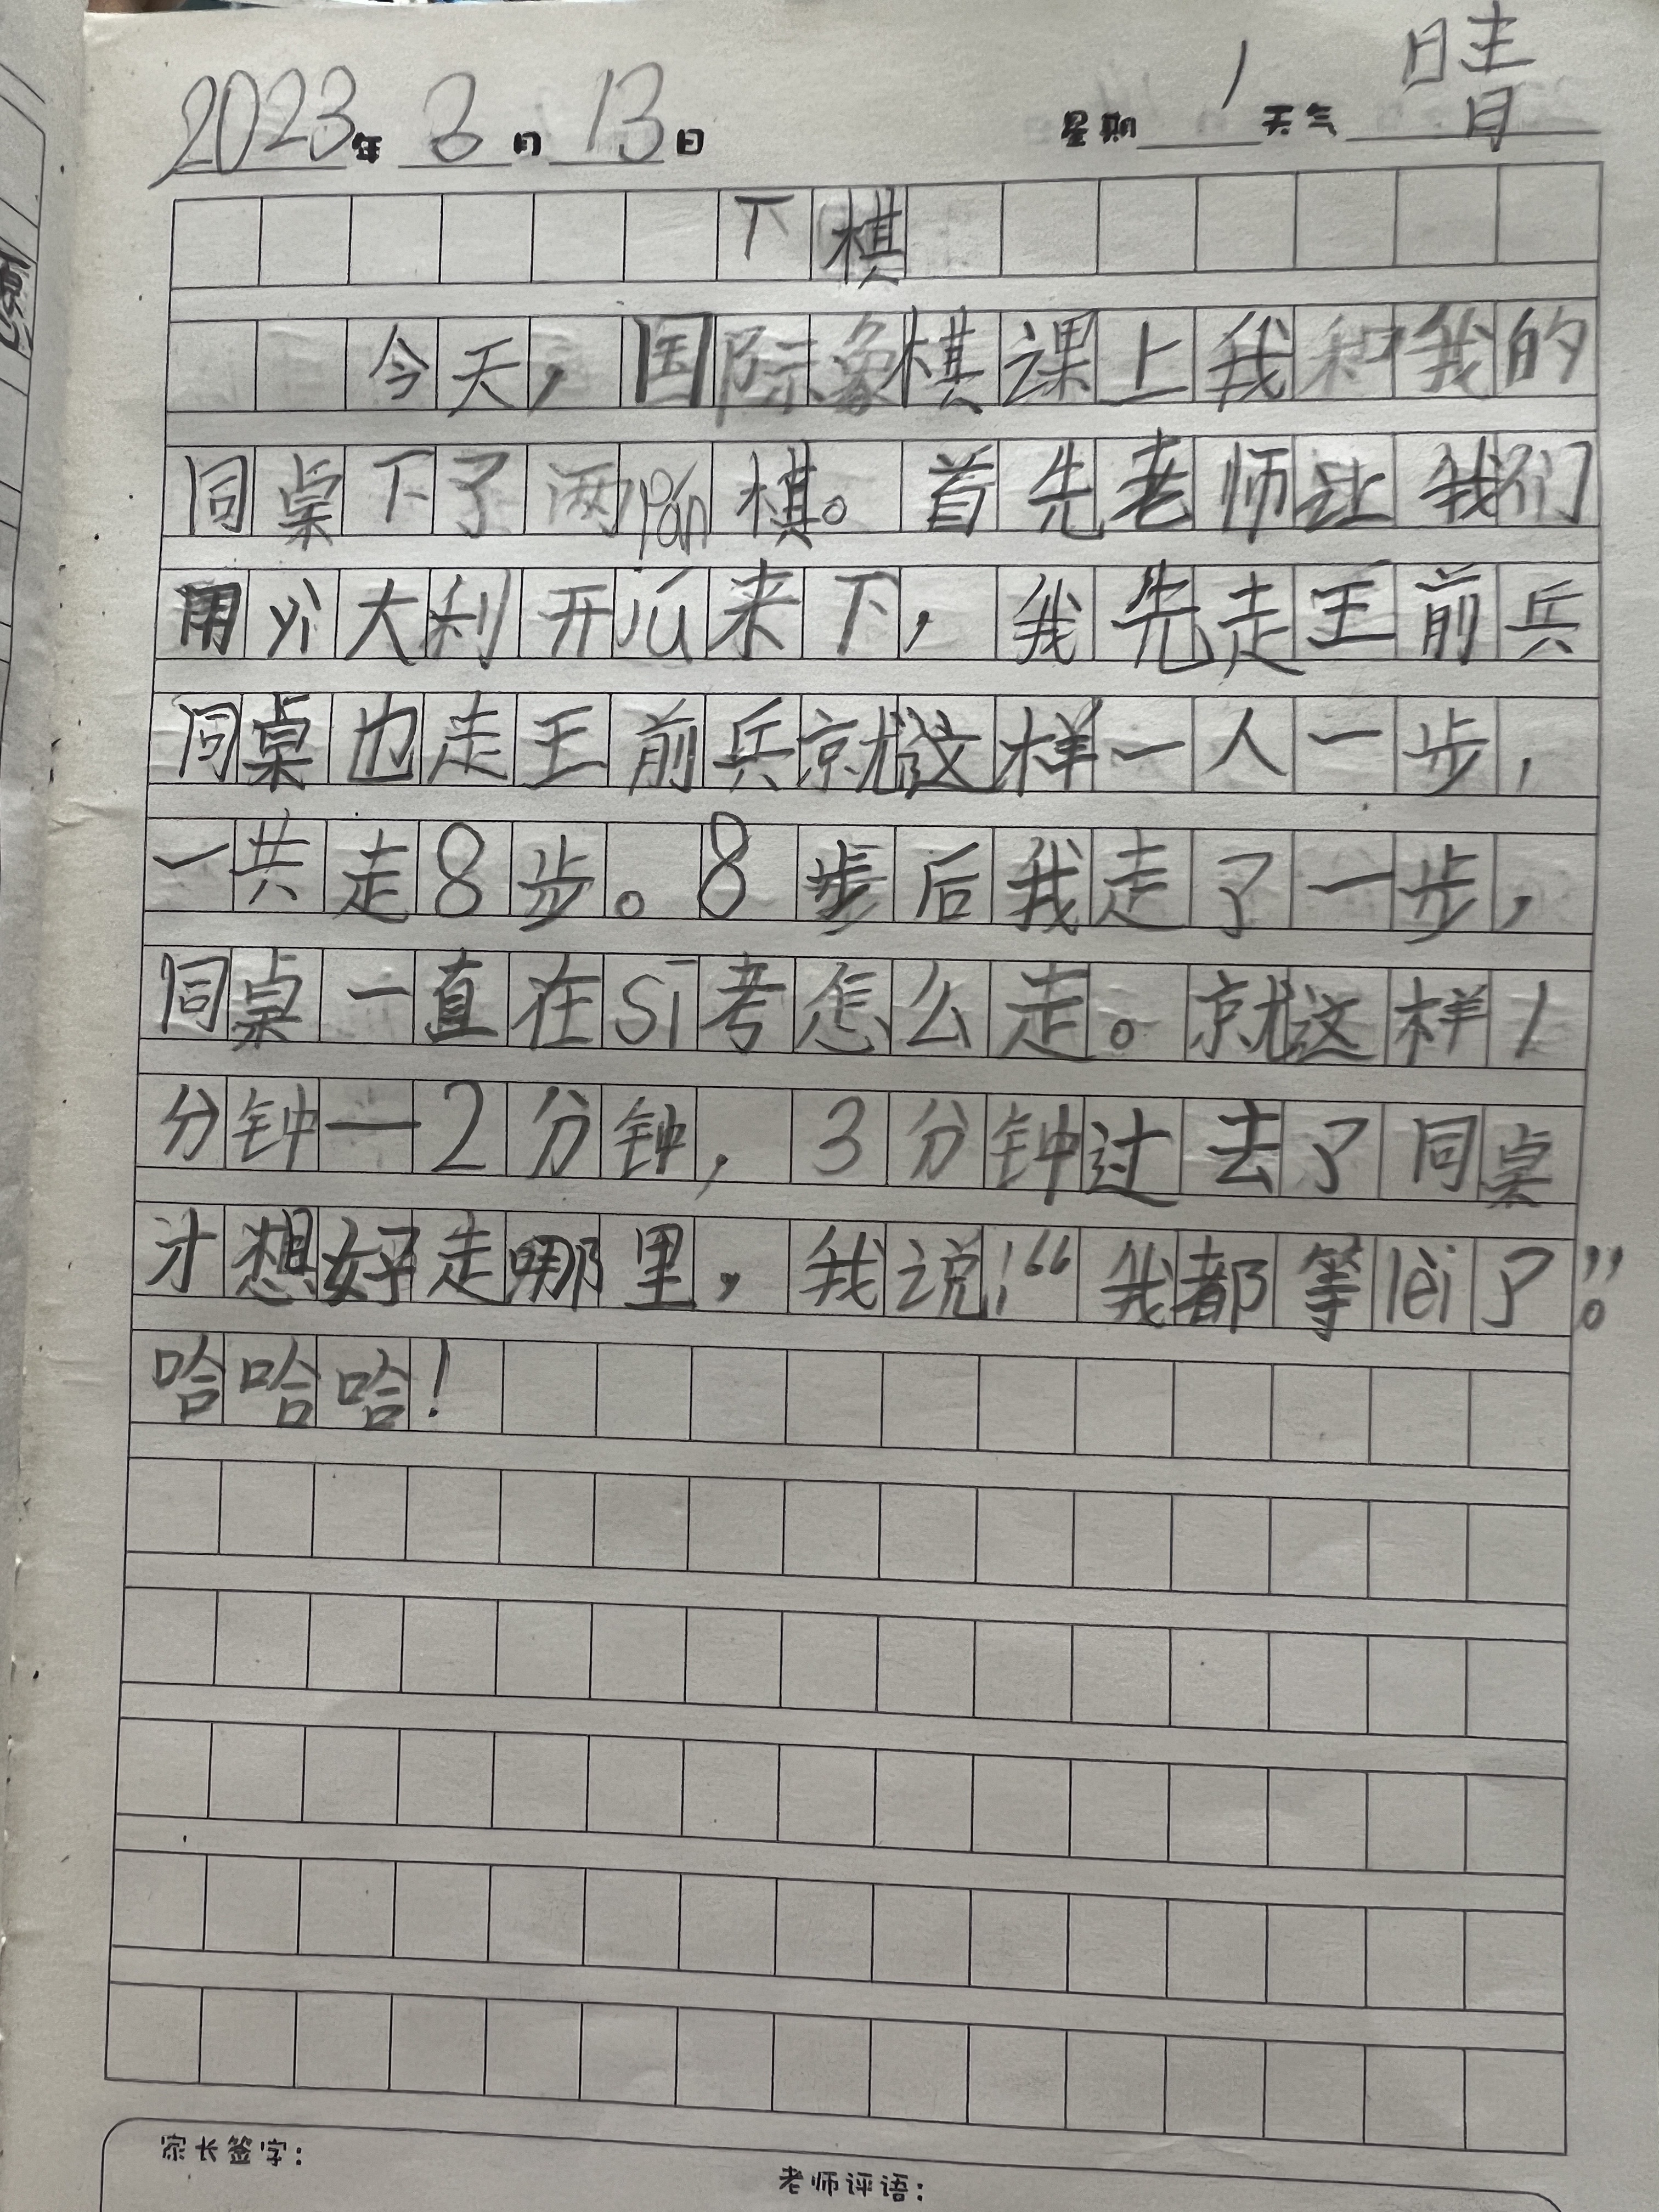 2023年3月13日 星期1天气晴
下棋
今天，国际象棋课上我和我的
同桌下了两pán棋。首先老师让我们
用yì大利开jú来下，我先走王前兵
同桌也走王前兵就这样一人一步，
一共走8步。8步后我走了一步，
同桌一直在sī考怎么走。就这样1
分钟—2分钟，3分钟过去了同桌
才想好走哪里，我说！“我都等lèi了”。
哈哈哈！
家长签字：
老师评语：